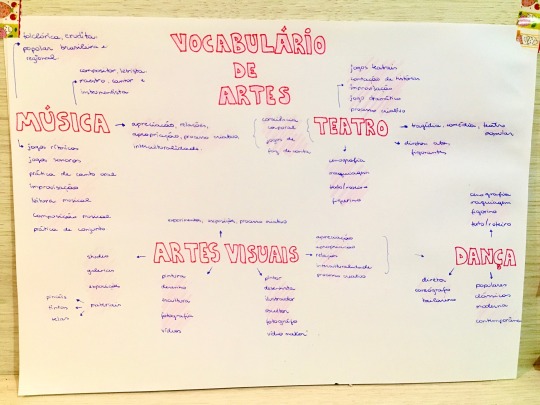 VOCABULÁRIO
DE
ARTES
folclórica, erudita
popular brasileira e
regional
compositor, letrista
maestro, cantor e
instrumentista
MÚSICA
apreciação, relações,
apropriação, processo criativo
interculturalidade.
jogos rítmicos
jogos sonoros
prática de canto oral
improvisação
leitura musical
composição musical
prática de conjunto
consciência
corporal
jogos de
faz de conta
jogos teatrais
contação de histórias
improvisação
jogo dramático
processo criativo
TEATRO
tragédia, comédias, teatro
popular
diretor, ator,
figurantes
cenografia
maquiagem
texto/roteiro
figurino
experimentos, expressões, processo criativo
ARTES VISUAIS
apreciação
apropriação
relações
interculturalidade
processo criativo
studio
galerias
exposições
materiais
pincéis
tintas
telas
pintura
desenho
escultura
fotografia
vídeos
pintor
desenhista
ilustrador
escultor
fotógrafo
video maker
cenografia
maquiagem
figurino
texto/roteiro
DANÇA
diretor
coreógrafo
bailarino
populares
clássicas
moderna
contemporânea